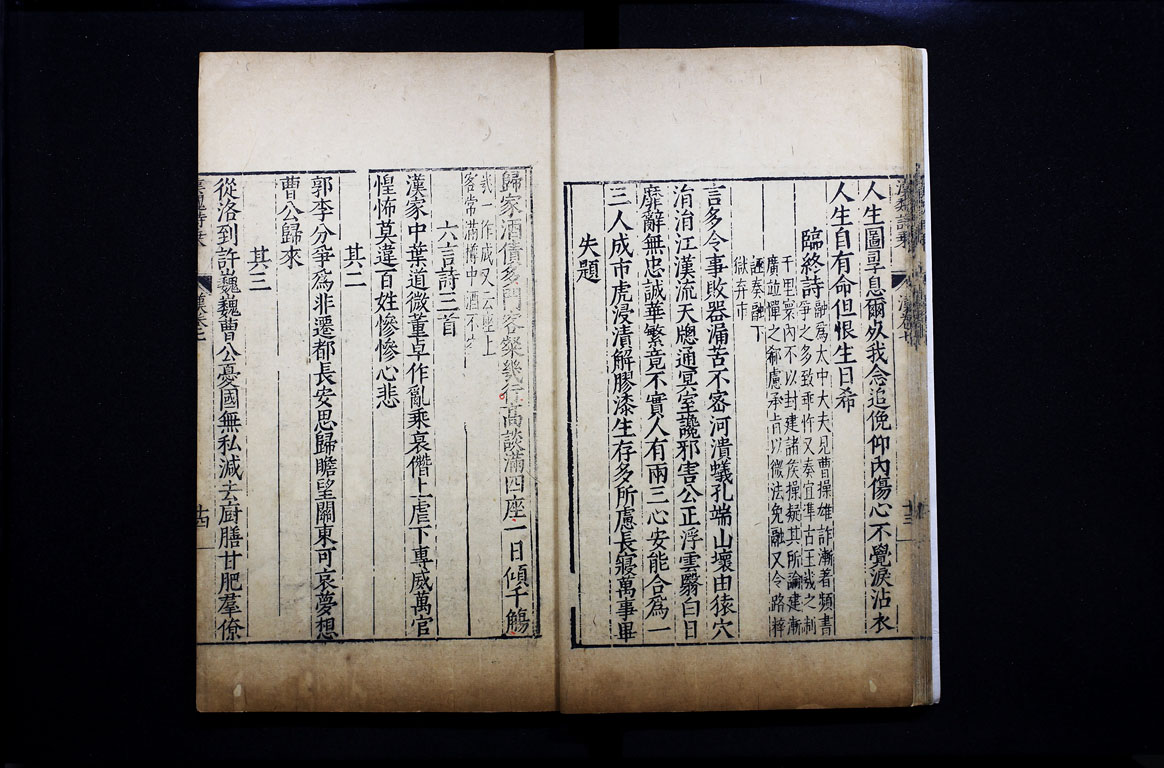 人生圖享息爾死我念追俛仰內傷心不覺淚沾衣
人生自有命但恨生日希
臨終詩
融爲太中大夫見曹操雄詐漸著頻書
爭之多致乖忤又奏宜準古王畿之制
千里寰內不以封建諸侯操疑其所論建漸
廣益憚之郗慮承旨以微法免融又令路粹
誣奏融下
獄弃市
言多令事敗器漏苦不密河潰蟻孔端山壞由猿穴
涓涓江漢流天牕通冥室讒邪害公正浮雲翳白日
靡辭無忠誠華繁竟不實人有兩三心安能合爲一
三人成市虎浸漬解膠漆生存多所慮長寢萬事畢
失題
歸家酒債多門客粲幾行高談滿四座一日傾千觴
幾一作成又云座上
客常滿樽中酒不空
六言詩三首
漢家中葉道微董卓作亂乘衰僭上虐下專威萬官
惶怖莫違百姓慘慘心悲
其二
郭李分爭爲非遷都長安思歸瞻望關東可哀夢想
曹公歸來
其三
從洛到許巍巍曹公憂國無私減去厨膳甘肥羣僚
十四